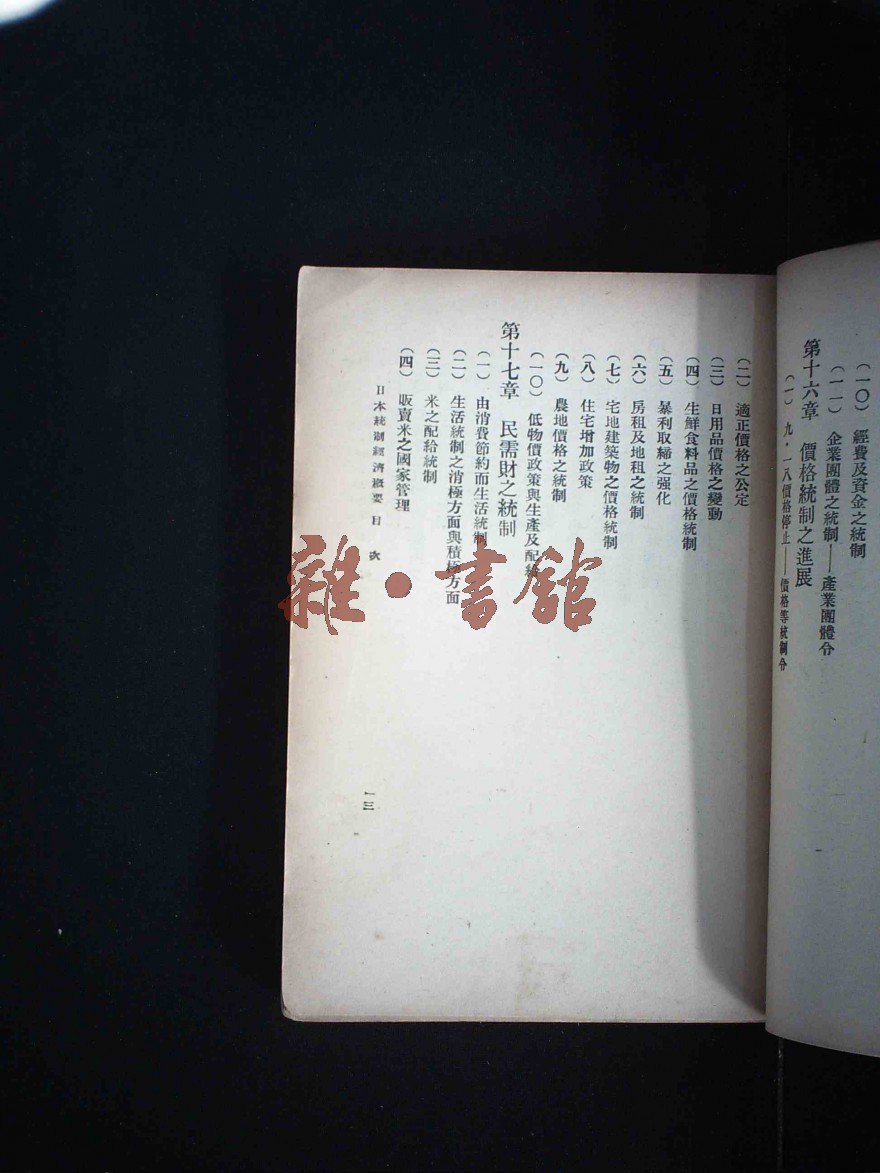 （一〇） 經費及資金之統制
（一一） 企業團體之統制——產業團體令
第十六章 價格統制之進展
（一） 九・一八價格停止——價格等統制令
（二） 適正價格之公定
（三） 日用品價格之變動
（四） 生鮮食料品之價格統制
（五） 暴利取締之强化
（六） 房租及地租之統制
（七） 宅地建築物之價格統制
（八） 住宅增加政策
（九） 農地價格之統制
（一〇） 低物價政策與生產及配給
第十七章 民需財之統制
（一） 由消費節約而生活統制
（二） 生活統制之消極方面與積極方面
（三） 米之配給統制
（四） 販賣米之國家管理
日本統制經濟概要 目 次
一三
雜・書館